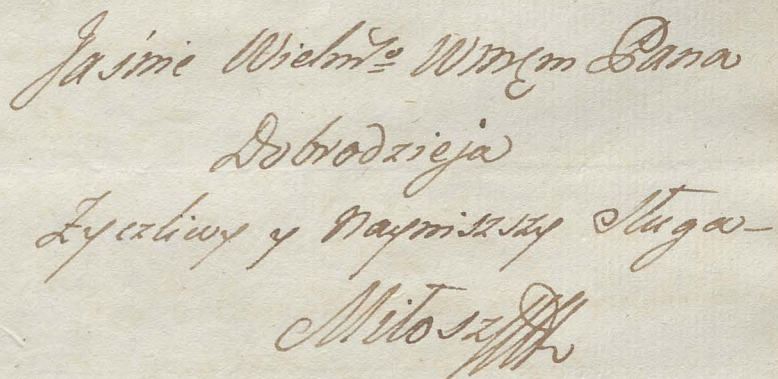 Jaśnie Wielmo Wmgm Pana
Dobrodzieja
Życzliwy y Nayniszszy Sługa
Miłosz